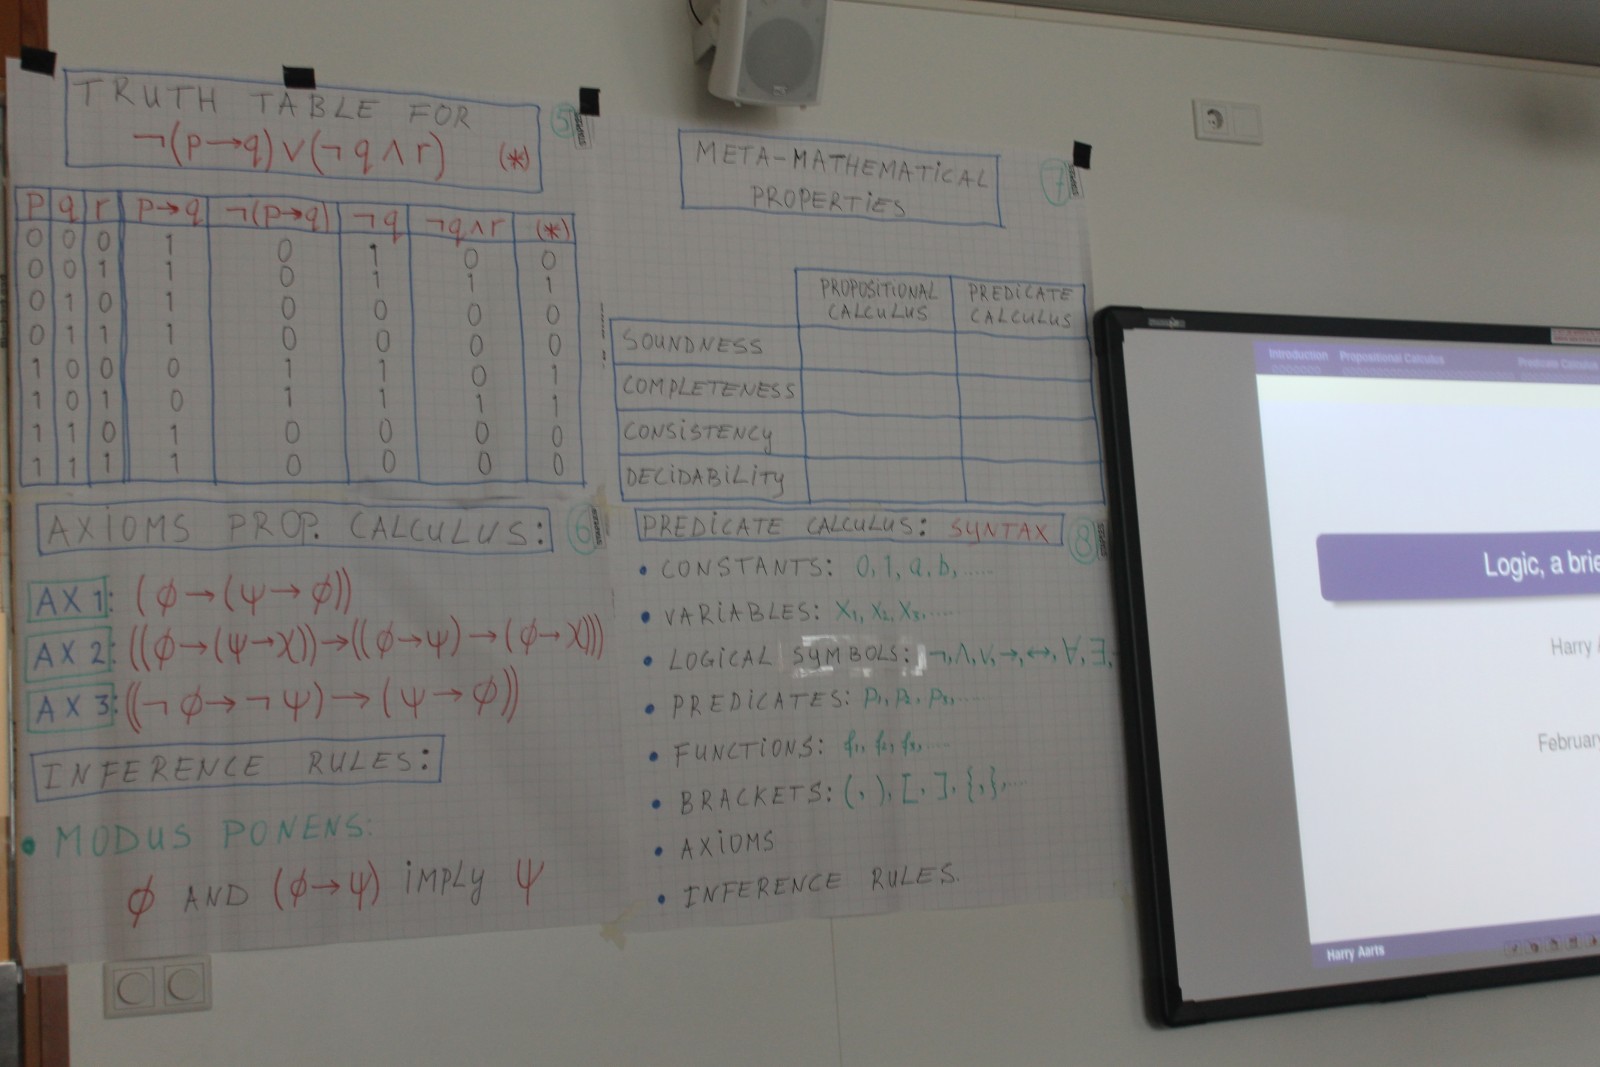 TRUTH TABLE FOR
¬(p→q)∨(¬q∧r) (*)
5
p q r p→q ¬(p→q) ¬q ¬q∧r (*)
0 0 0 1 0 1 0 0
0 0 1 1 0 1 1 1
0 1 0 1 0 0 0 0
0 1 1 1 0 0 0 0
1 0 0 0 1 1 0 1
1 0 1 0 1 1 1 1
1 1 0 1 0 0 0 0
1 1 1 1 0 0 0 0
AXIOMS PROP. CALCULUS:
6
AX 1: (ϕ→(ψ→ϕ))
AX 2: ((ϕ→(ψ→χ))→((ϕ→ψ)→(ϕ→χ)))
AX 3: ((¬ϕ→¬ψ)→(ψ→ϕ))
INFERENCE RULES:
• MODUS PONENS:
ϕ AND (ϕ→ψ) IMPLY ψ
META-MATHEMATICAL
PROPERTIES
7
PROPOSITIONAL
CALCULUS
PREDICATE
CALCULUS
SOUNDNESS
COMPLETENESS
CONSISTENCY
DECIDABILITY
PREDICATE CALCULUS: SYNTAX
8
• CONSTANTS: 0, 1, a, b, .....
• VARIABLES: x₁, x₂, x₃, ....
• LOGICAL SYMBOLS: ¬, ∧, ∨, →, ↔, ∀, ∃,
• PREDICATES: p₁, p₂, p₃, ....
• FUNCTIONS: f₁, f₂, f₃, ....
• BRACKETS: (, ), [, ], {, }, ....
• AXIOMS
• INFERENCE RULES.
Introduction Propositional Calculus Predicate Calculus
Logic, a brie
Harry A
February
Harry Aarts